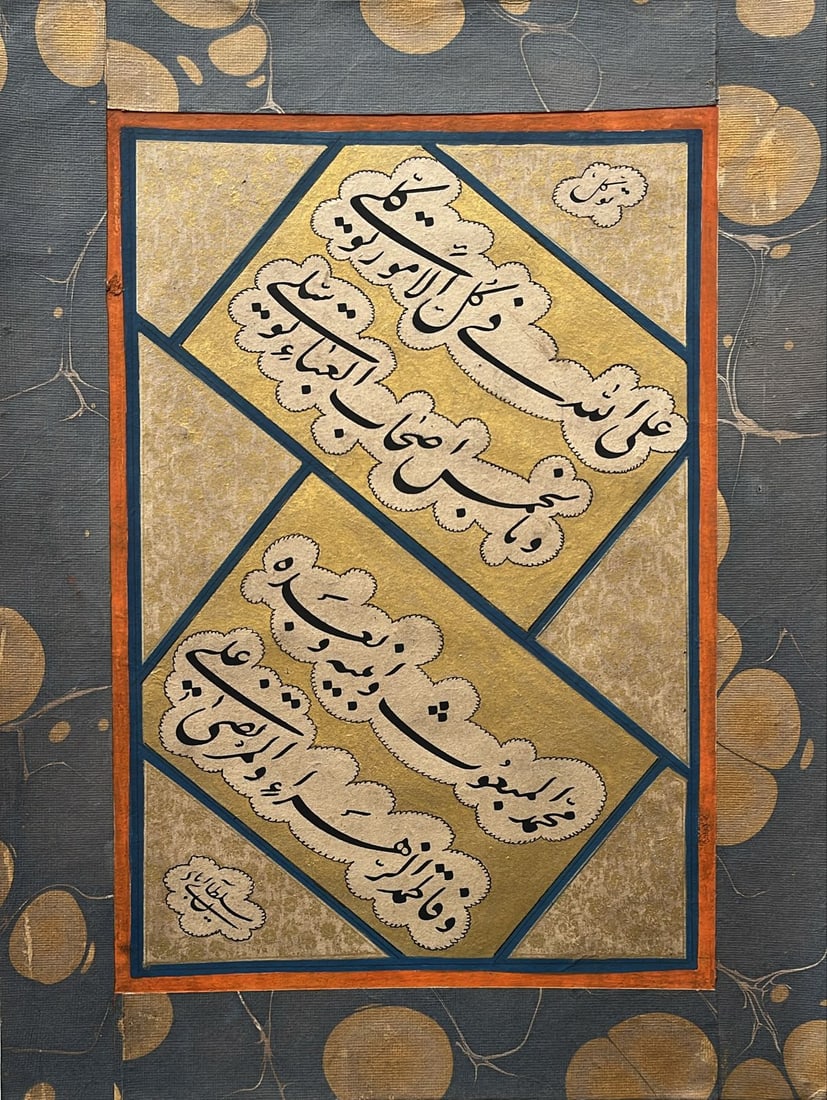 توكل
على الله في كُلّ الامور توكّلي
وبالخمس اصحاب العباء توسّلي
محمّد المبعوث وابنيه و بعده
وفاطمة الزهراء والمرتضى علي